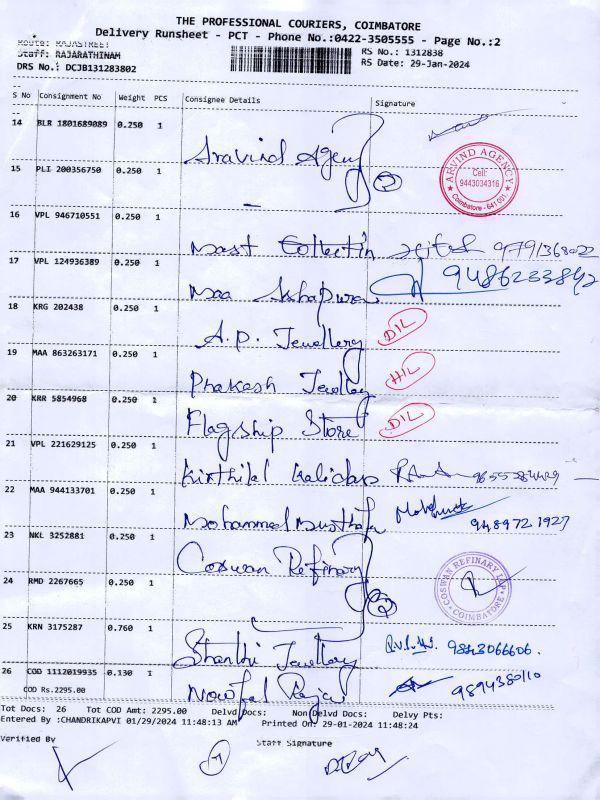 THE PROFESSIONAL COURIERS, COIMBATORE
Delivery Runsheet - PCT - Phone No.:0422-3505555 - Page No.:2
Route: RAJASTREET
Staff: RAJARATHINAM
RS No.: 1312838
DRS No.: DCJB131283802
RS Date: 29-Jan-2024
S No Consignment No Weight PCS Consignee Details Signature
14 BLR 1801689089 0.250 1
Aravind Agency
ARVIND AGENCY
Cell:
9443034316
Coimbatore - 641 001.
15 PLI 200356750 0.250 1
2
16 VPL 946710551 0.250 1
Mast Collectin 9791368022
17 VPL 124936389 0.250 1
Maa Ashapura 9486233842
18 KRG 202438 0.250 1
A.P. Jewellery DIL
19 MAA 863263171 0.250 1
Prakash Jewellery HIL
20 KRR 5854968 0.250 1
Flagship Store DIL
21 VPL 221629125 0.250 1
Kirthilal Kalidas
22 MAA 944133701 0.250 1
Mohammed Musthafa 9489721927
23 NKL 3252881 0.250 1
Coswan Refinary
COSWAN REFINARY LAB
COIMBATORE
24 RMD 2267665 0.250 1
2
25 KRN 3175287 0.760 1
Shanthi Jewellery 9843066606.
26 COD 1112019935 0.130 1
COD Rs.2295.00
Nowfal 9894380110
Tot Docs: 26 Tot COD Amt: 2295.00 Delvd Docs: Non Delvd Docs: Delvy Pts:
Entered By :CHANDRIKAPVI 01/29/2024 11:48:13 AM Printed On: 29-01-2024 11:48:24
Verified By Staff Signature